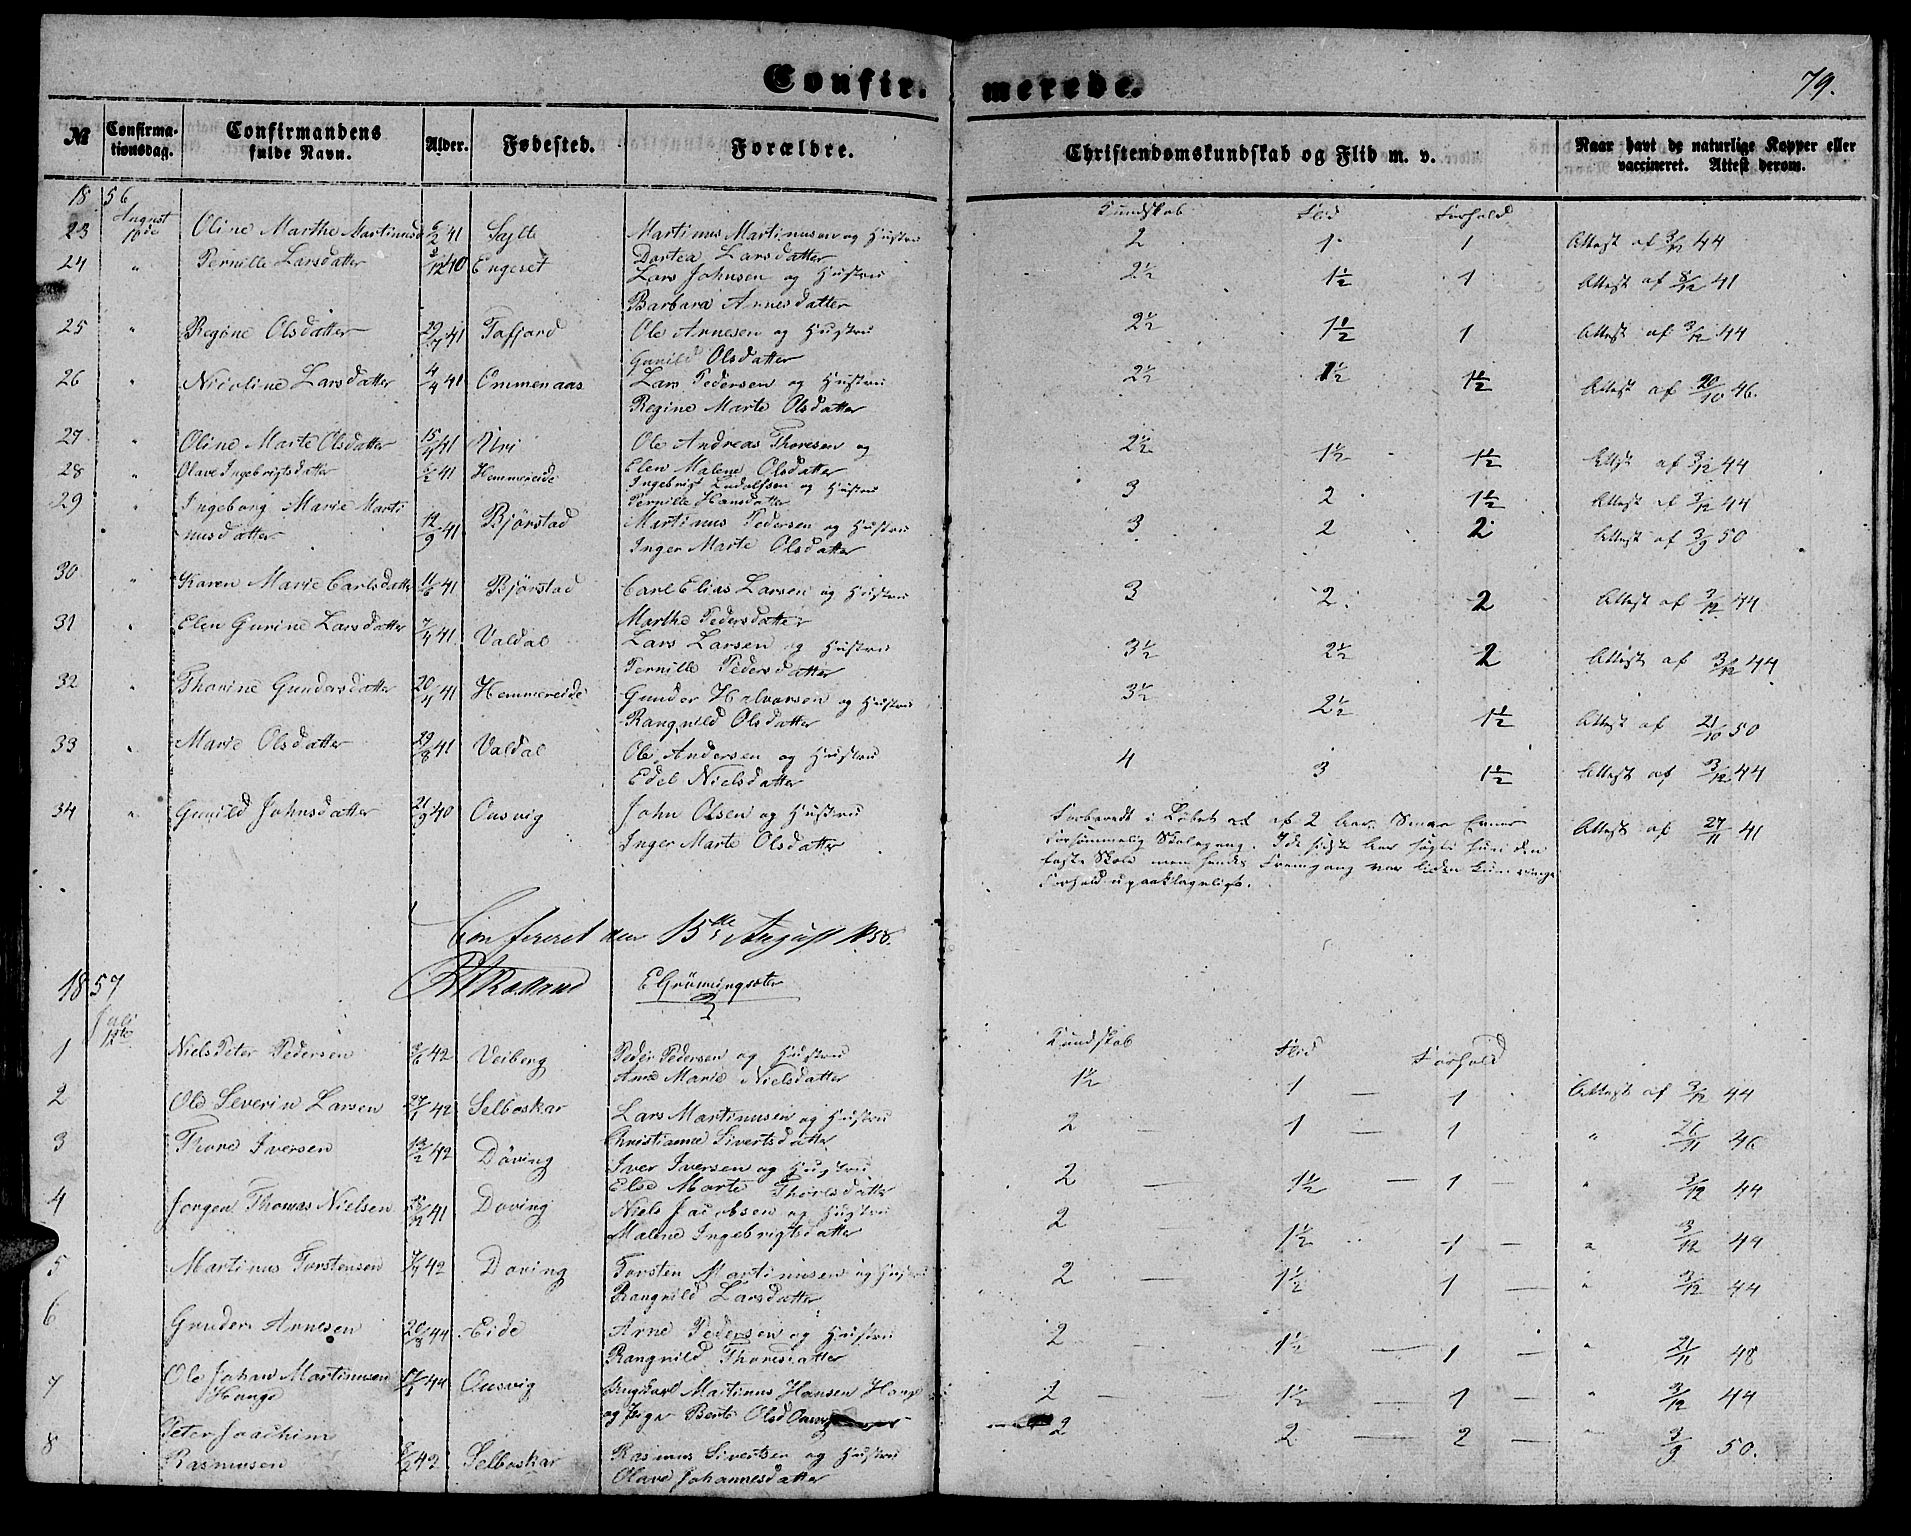 Confirmerede.
79.
№ Confirmationsdag. Confirmandens fulde Navn. Alder. Fødested. Forældre. Christendomskundskab og Flid m. v. Naar havt de naturlige Kopper eller vaccineret. Attest derom.
1856
Kundskab Flid Forhold
23 August 10de Oline Marthe Martinusd 6/2 41 Sylte Martinus Martinusen og Hustru Dortea Larsdatter 2 1 1 Attest af 3/12 44
24 " Pernille Larsdatter 12 40 Engeset Lars Johnsen og Hustru Barbara Annesdatter 2½ 1½ 1 Attest af 8/12 41
25 " Regine Olsdatter 29/7 41 Tafjord Ole Arnesen og Hustru Gunild Olsdatter 2½ 1½ 1 Attest af 3/12 44
26 " Nicoline Larsdatter 4/4 41 Ommenaas Lars Pedersen og Hustru Regine Marte Olsdatter 2½ 1½ 1½ Attest af 20/10 46.
27 " Oline Marte Olsdatter 15/4 41 Uri Ole Andreas Thoresen og Elen Malene Olsdatter 2½ 1½ 1½ Attest af 3/12 44
28 " Olave Ingebrigtsdatter 6/2 41 Hemmereide Ingebrigt Ludolfsen og Hustru Pernille Hansdatter 3 2 1½ Attest af 3/12 44
29 " Ingeborg Marie Martinusdatter 12/9 41 Bjørstad Martinus Pedersen og Hustru Inger Marte Olsdatter 3 2 2 Attest af 3/9 50
30 " Karen Marie Carlsdatter 11/6 41 Bjørstad Carl Elias Larsen og Hustru Marthe Pedersdatter 3 2 2 Attest af 3/12 44
31 " Elen Gurine Larsdatter 7/4 41 Valdal Lars Larsen og Hustru Pernille Pedersdatter 3½ 2½ 2 Attest af 3/12 44
32 " Thorine Gundersdatter 20/4 41 Hemmereide Gunder Halvorsen og Hustru Rangnild Olsdatter 3½ 2½ 1½ Attest af 21/10 50
33 " Marie Olsdatter 29/8 41 Valdal Ole Andersen og Hustru Edel Nielsdatter 4 3 1½ Attest af 3/12 44
34 " Gunild Johnsdatter 21/9 40 Onsvig John Olsen og Hustru Inger Marte Olsdatter Forberedt i Løbet af 2 Aar. Attest af 27/11 41
forsømmelig Skolegang. I det sidste Aar søgte hun den
faste Skole men hendes Fremgang var liden kun ringe
Forhold upaaklageligt.
Confereret den 15de August 1858.
E Grönningsæter
1857
Juli 12te
Kundskab Flid Forhold
1 Niels Peter Pedersen 3/6 42 Veiberg Peder Pedersen og Hustru Ane Marie Nielsdatter 1½ 1 — 1 Attest af 3/12 44
2 Ole Severin Larsen 27/1 42 Selboskar Lars Martinusen og Hustru Christianne Sivertsdatter 2 1 — 1 " 26/11 46
3 Thore Iversen 13/2 42 Döving Iver Iversen og Hustru Else Marte Thoresdatter 2 — 1½ — 1 — " 3/12 44
4 Jorgen Thomas Nielsen 15/12 41 Doving Niels Jacobsen og Hustru Malene Ingebrigtsdatter 2 1½ 1 — " 3/12 44
5 Martinus Torstensen 7/4 42 Doving Torsten Martinusen og Hustru Rangnild Larsdatter 2 — 1½ 1 — " 3/12 44
6 Gunder Annesen 20/3 44 Eide Arne Pedersen og Hustru Rangnild Thoresdatter 2 1½ — 1 — " 21/11 48
7 Ole Johan Martinusen Hauge 17/1 44 Onsvig Ungkarl Martinus Hansen Hauge og Pige Berte Olsd Onsvig 2 — 1½ — 1 — " 3/12 44
8 Peter Joachim Rasmusen 8/2 42 Selboskar Rasmus Sivertsen og Hustru Olave Johannesdatter 2 2 — 2 — " 3/9 50.